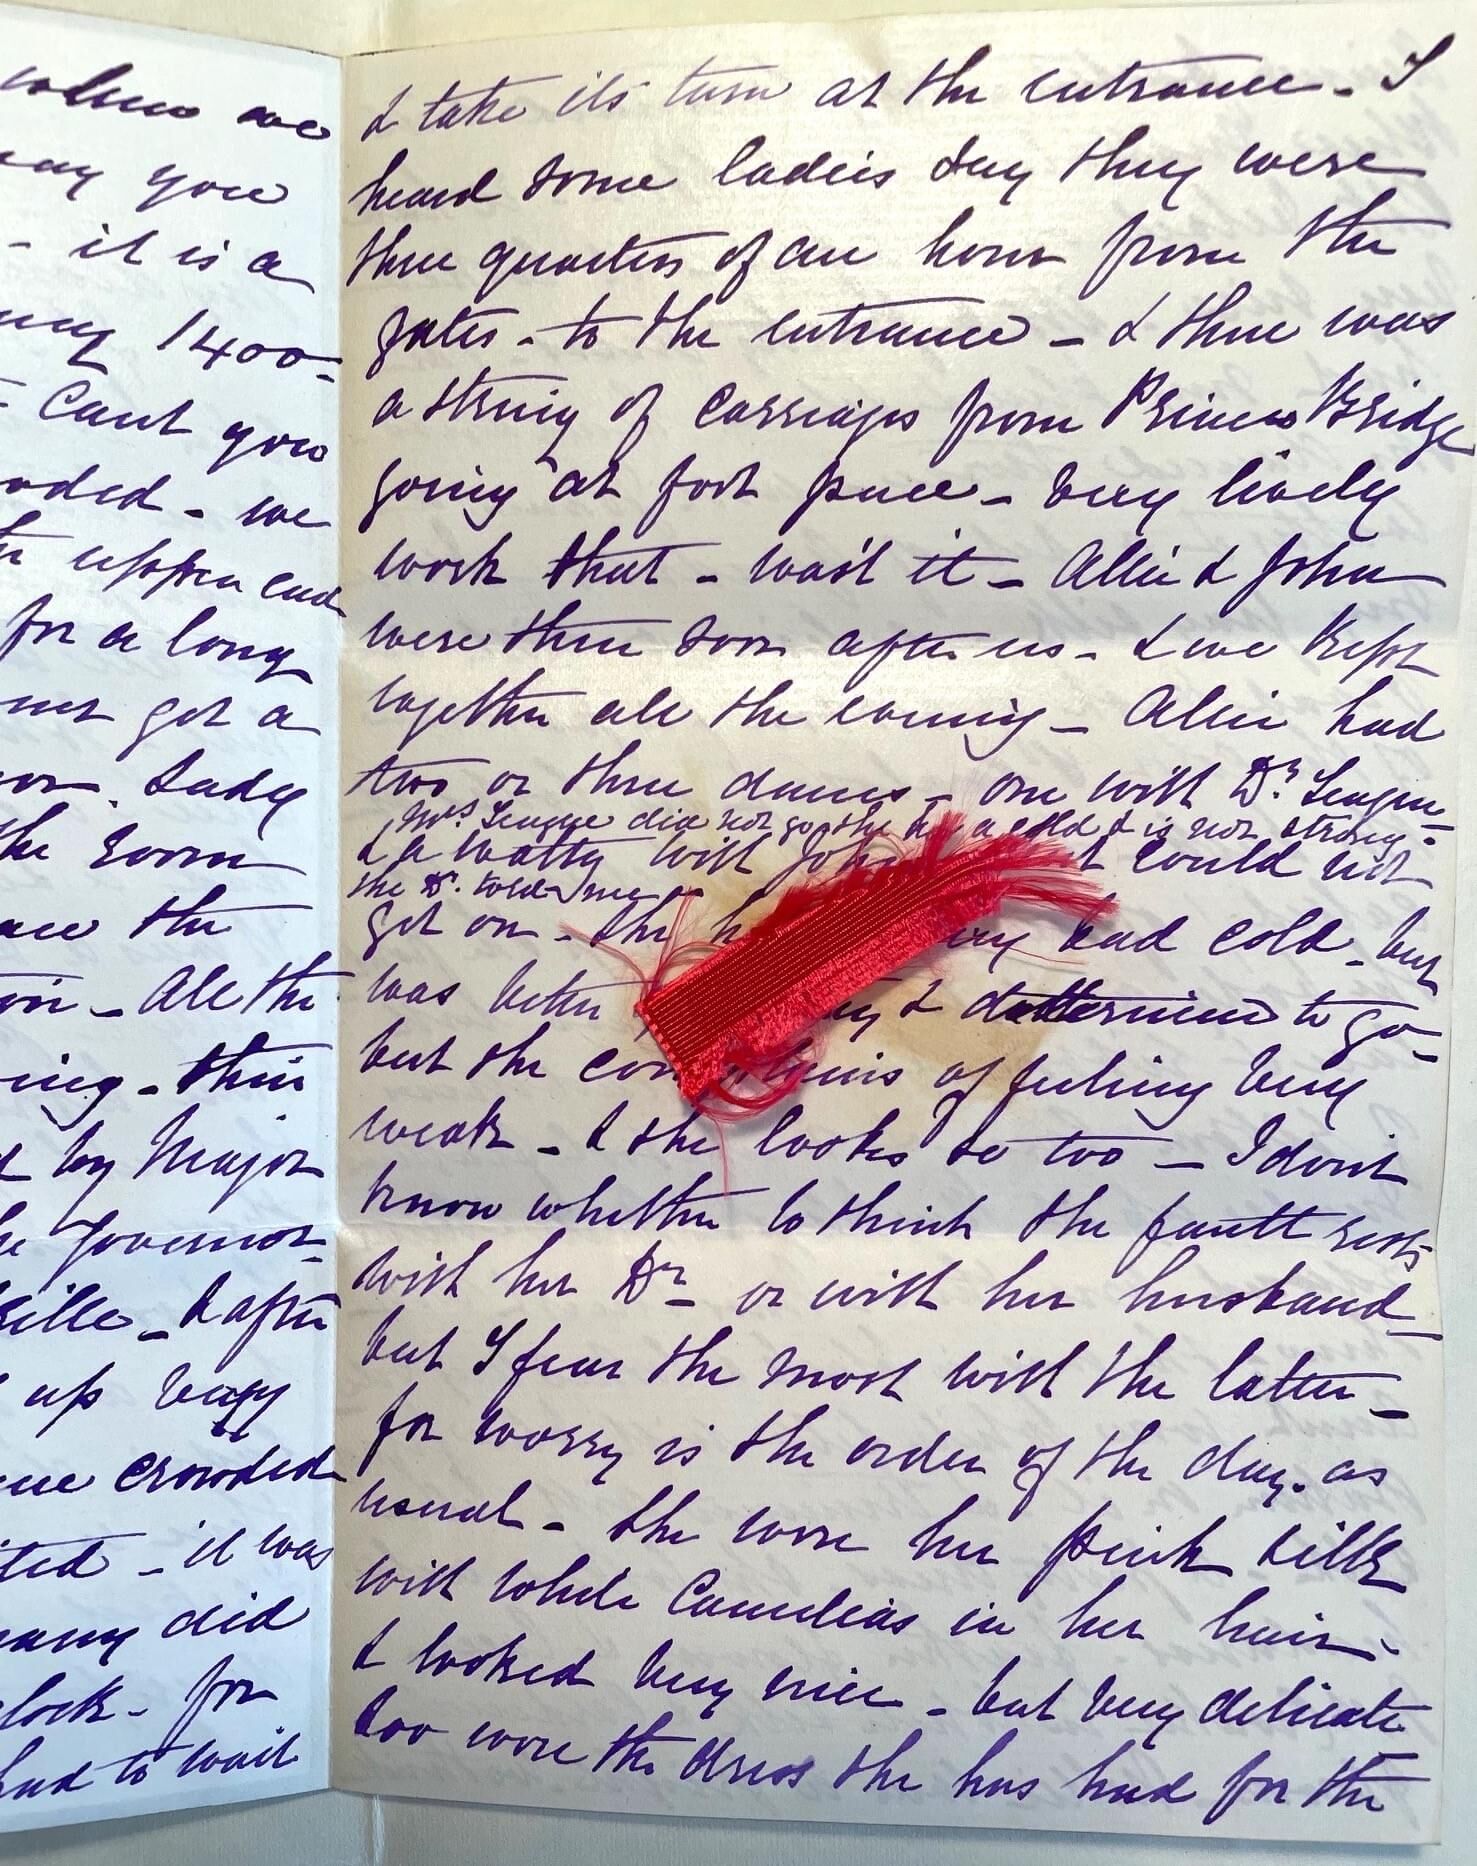 when we
may you
- it is a
1400-
- Cant you
- we
upper end
for a long
not got a
Lady
the room
the
- All the
- then
by Major
Governor-
ville - & after
up very
crowded
- it was
many did
clock - for
had to wait
& take its turn at the entrance - I
heard some ladies say they were
three quarters of an hour from the
gates - to the entrance - & there was
a string of carriages from Princes Bridge
going at foot pace - very lively
work that - was't it - Allie & John
were there soon after us - & we kept
together all the evening - Allie had
two or three dances - one with Dr. Teague -
Mrs. Teague did not go she a cold & is not strong -
& a waltz with John could not
the Dr. told me
get on - she bad cold - but
was better & determined to go -
but she of feeling very
weak - & she looks so too - I don't
know whether to think the fault rests
with her Dr - or with her husband -
but I fear the most with the latter -
for worry is the order of the day. as
usual - she wore her pink silk
with white Camelias in her hair -
& looked very nice - but very delicate
Loo wore the dress she has had for the